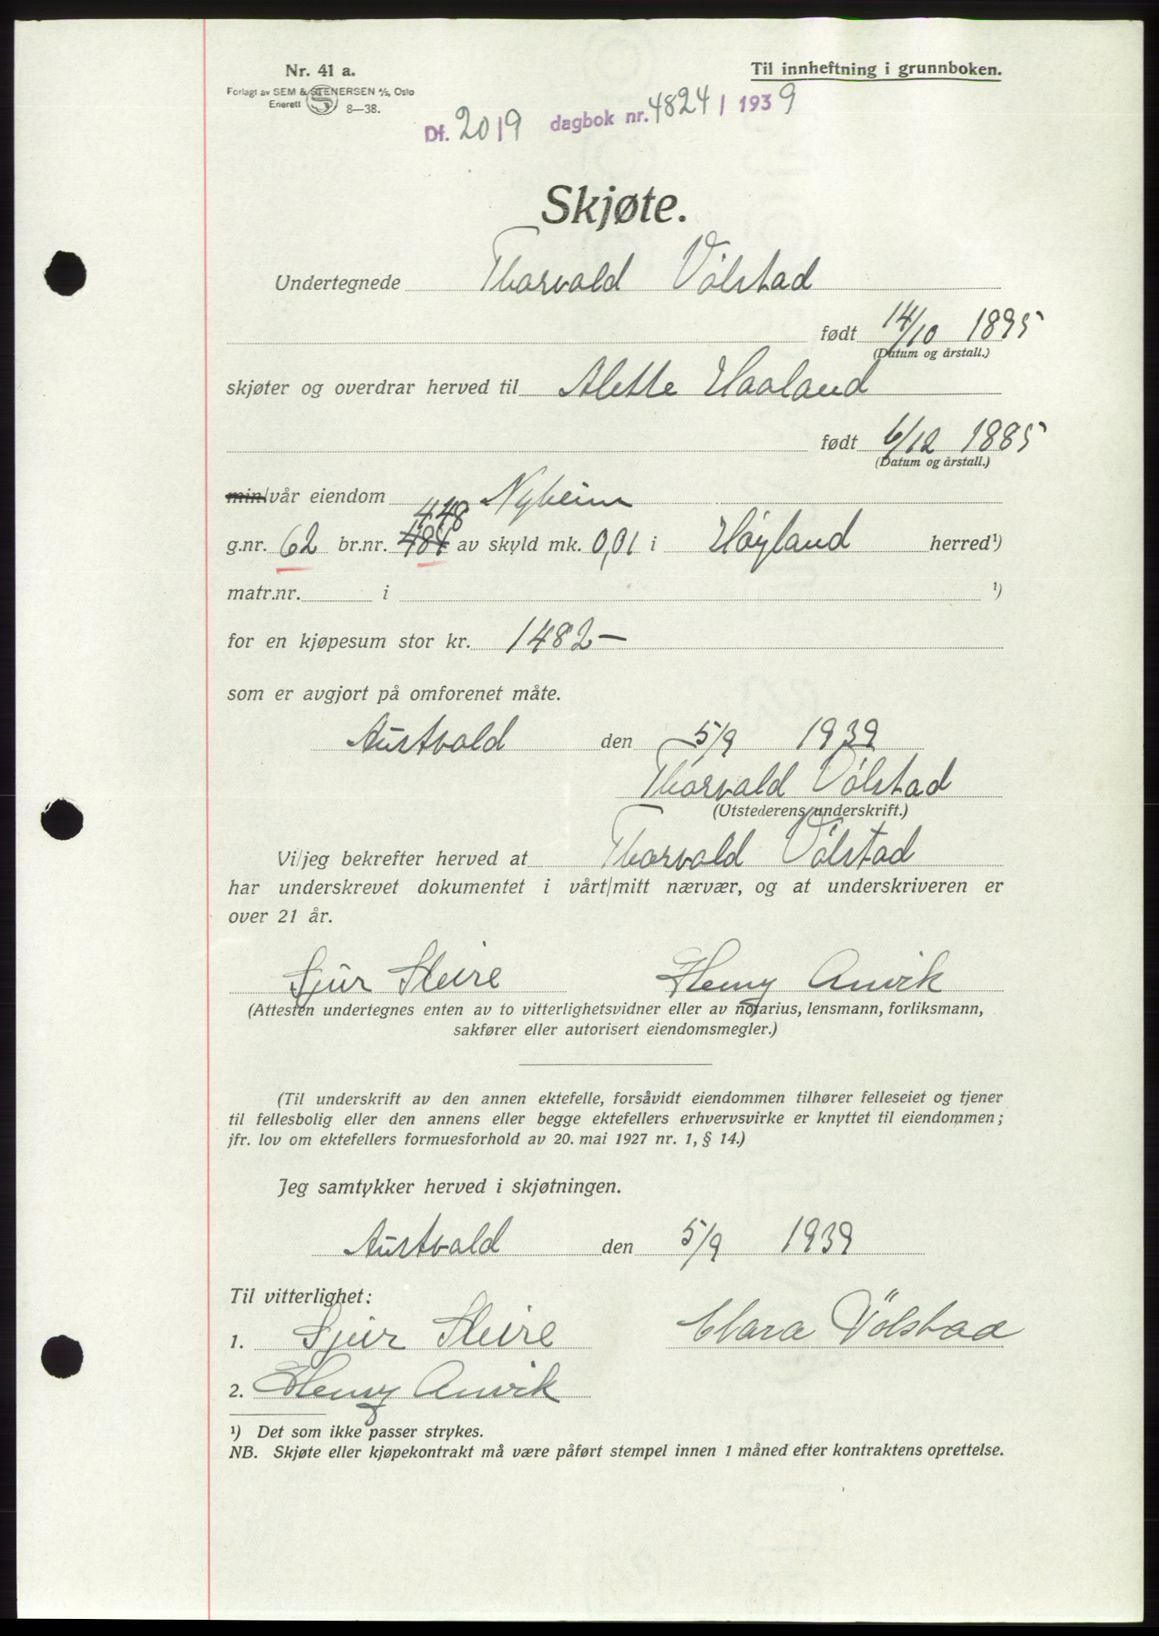 Nr. 41 a.
Til innheftning i grunnboken.
Forlagt av SEM & STENERSEN A/S, Oslo
Enerett S 8—38.
Df. 2019 dagbok nr. 4824 / 1939
Skjøte.
Undertegnede Thorvald Vølstad
født 14/10 1895
(Datum og årstall.)
skjøter og overdrar herved til Alette Haaland
født 6/12 1885
(Datum og årstall.)
min/vår eiendom Nyheim
448
g.nr. 62 br.nr. 484 av skyld mk. 0,01 i Høyland herred¹)
matr.nr. i ¹)
for en kjøpesum stor kr. 1482—
som er avgjort på omforenet måte.
Austvold den 5/9 1939
Thorvald Vølstad
(Utstederens underskrift.)
Vi/jeg bekrefter herved at Thorvald Vølstad
har underskrevet dokumentet i vårt/mitt nærvær, og at underskriveren er
over 21 år.
Sjur Steire Henry Anvik
(Attesten undertegnes enten av to vitterlighetsvidner eller av notarius, lensmann, forliksmann,
sakfører eller autorisert eiendomsmegler.)
(Til underskrift av den annen ektefelle, forsåvidt eiendommen tilhører felleseiet og tjener
til fellesbolig eller den annens eller begge ektefellers erhvervsvirke er knyttet til eiendommen;
jfr. lov om ektefellers formuesforhold av 20. mai 1927 nr. 1, § 14.)
Jeg samtykker herved i skjøtningen.
Austvold den 5/9 1939
Til vitterlighet:
1. Sjur Steire Clara Vølstad
2. Henry Anvik
¹) Det som ikke passer strykes.
NB. Skjøte eller kjøpekontrakt må være påført stempel innen 1 måned efter kontraktens oprettelse.